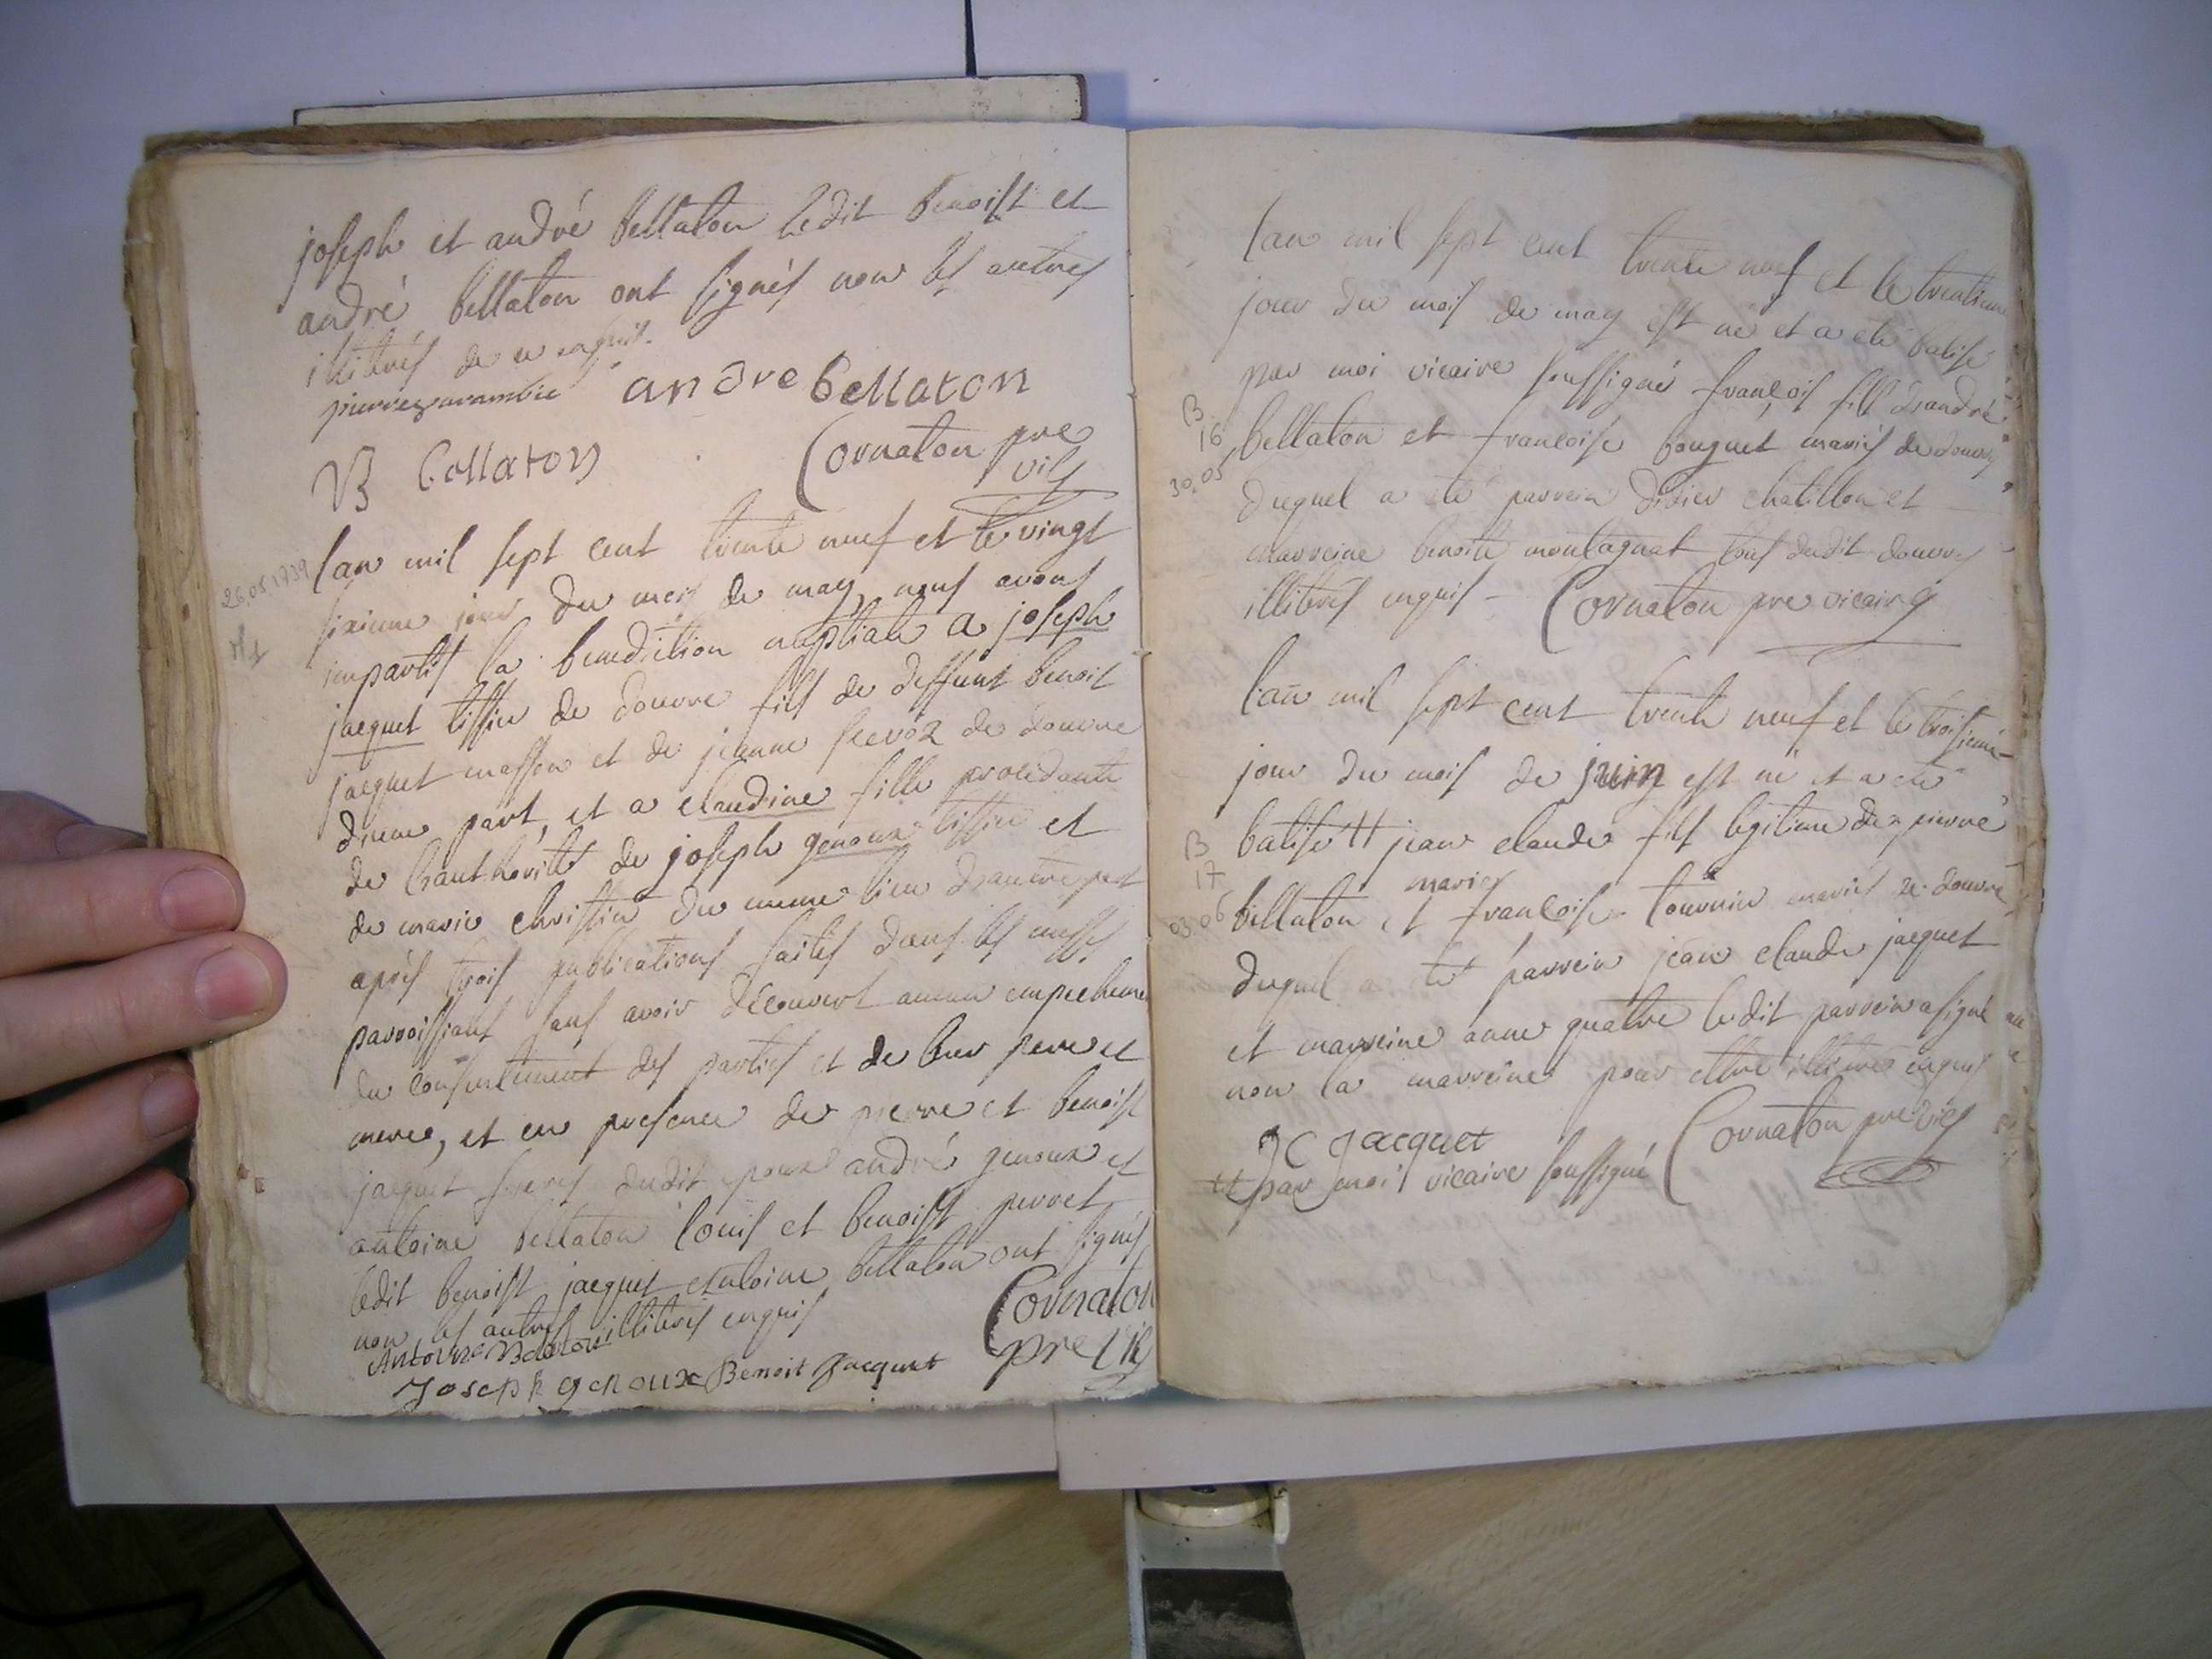 joseph et andré bellaton ledit benoist et
andré bellaton ont signés non les autres
illitérés de ce enquis.
andre bellaton
B bellaton
Cornaton pre
vic
lan mil sept cent trente neuf et le vingt
26.05.1739
sixieme jour du mois de may, nous avons
M 1
impartis la benediction nuptiale a joseph
jacquet tissier de douvre fils de deffunt benoit
jacquet masson et de jeanne de douvre
dune part, et a claudine fille procedante
de lauthorité de joseph genoux tissier et
de marie christin du meme lieu dautre part
après trois publications faites dans les messes
parroissiales sans avoir découvert aucun empechement
du consentement des parties et de leur pere et
mere, et en presence de pierre et benoist
jacquet freres dudit epoux andré genoux et
antoine bellaton louis et benoist perret
ledit benoist jacquet et antoine bellaton ont signés
non les autres illiterés enquis
Cornaton
pre vic
Antoine
Joseph genoux Benoit Jacquet
lan mil sept cent trente neuf et le trentieme
jour du mois de may est né et a eté batisé
par moi vicaire soussigné françois fils dandré
B
16
bellaton et francoise bouguet mariés de douvre
30.05
duquel a eté parrein didier chatillon et
marreine benoite montagnat tous dudit douvres
illiterés enquis - Cornaton pre vicaire
lan mil sept cent trente neuf et le troisieme
jour du mois de juin est né et a eté
batisé # jean claude fils legitime de pierre
B
17
maries
bellaton et francoise tournier mariés de douvre
03.06
duquel a eté parrein jean claude jacquet
et marreine anne quatre ledit parrein a signé
non la marreine pour ettre illitrée enquis
JC Jacquet
Cornaton pre vic
# par moi vicaire soussigné